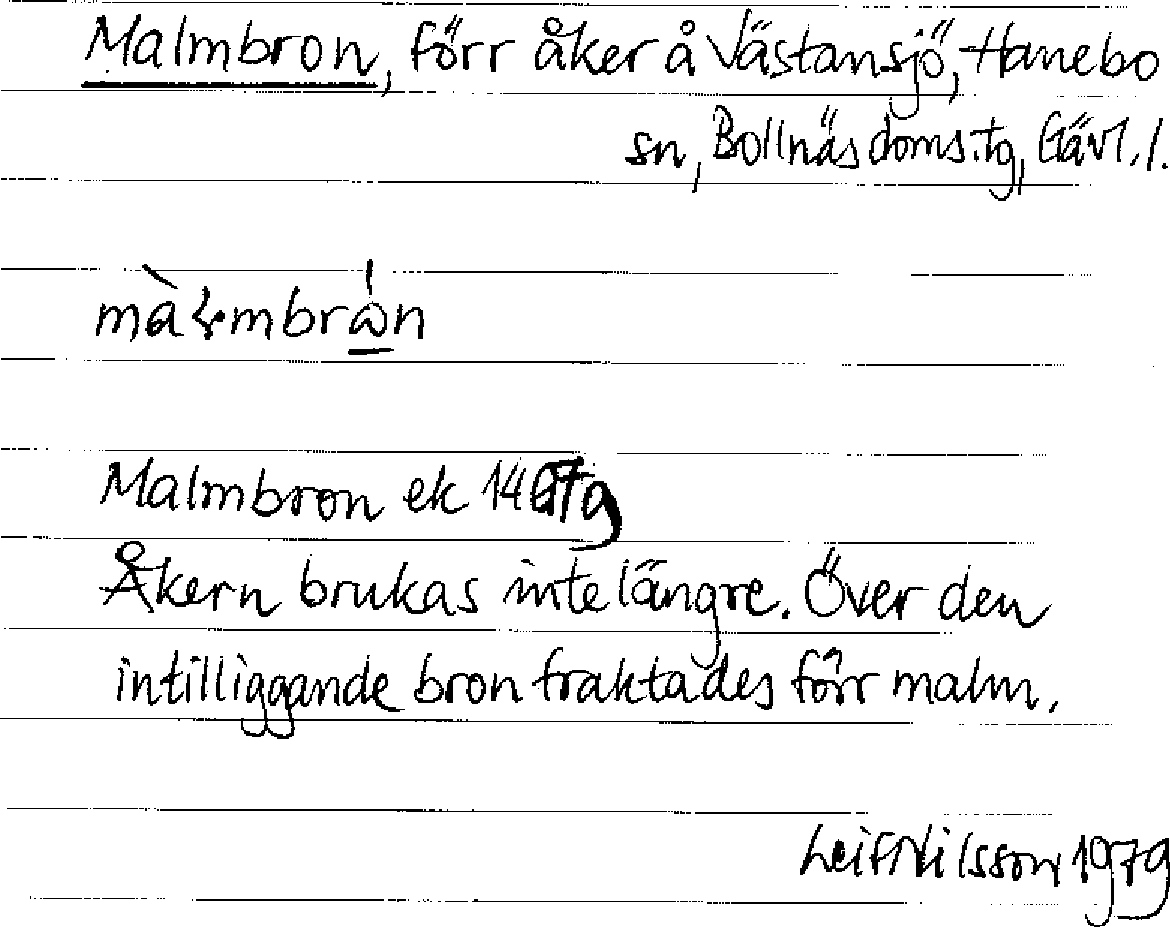 Malmbron, förr åker å Västansjö, Hanebo
sn, Bollnäs doms.tg, Gävl. l.
Malmbron ek
Åkern brukas inte längre. Över den
intilliggande bron fraktades förr malm.
Leif Nilsson 1979